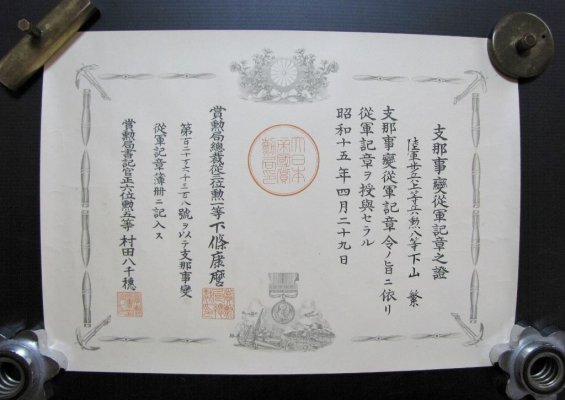 支那事變從軍記章之證
陸軍步兵上等兵勲八等下山 繁
支那事變從軍記章令ノ旨ニ依リ
從軍記章ヲ授與セラル
昭和十五年四月二十九日
大日本
帝國賞
勲局印
賞勲局總裁從三位勲一等下條康麿
號ヲ以テ支那事變
從軍記章簿册ニ記入ス
賞勲局書記官正六位勲五等 村田八千穗